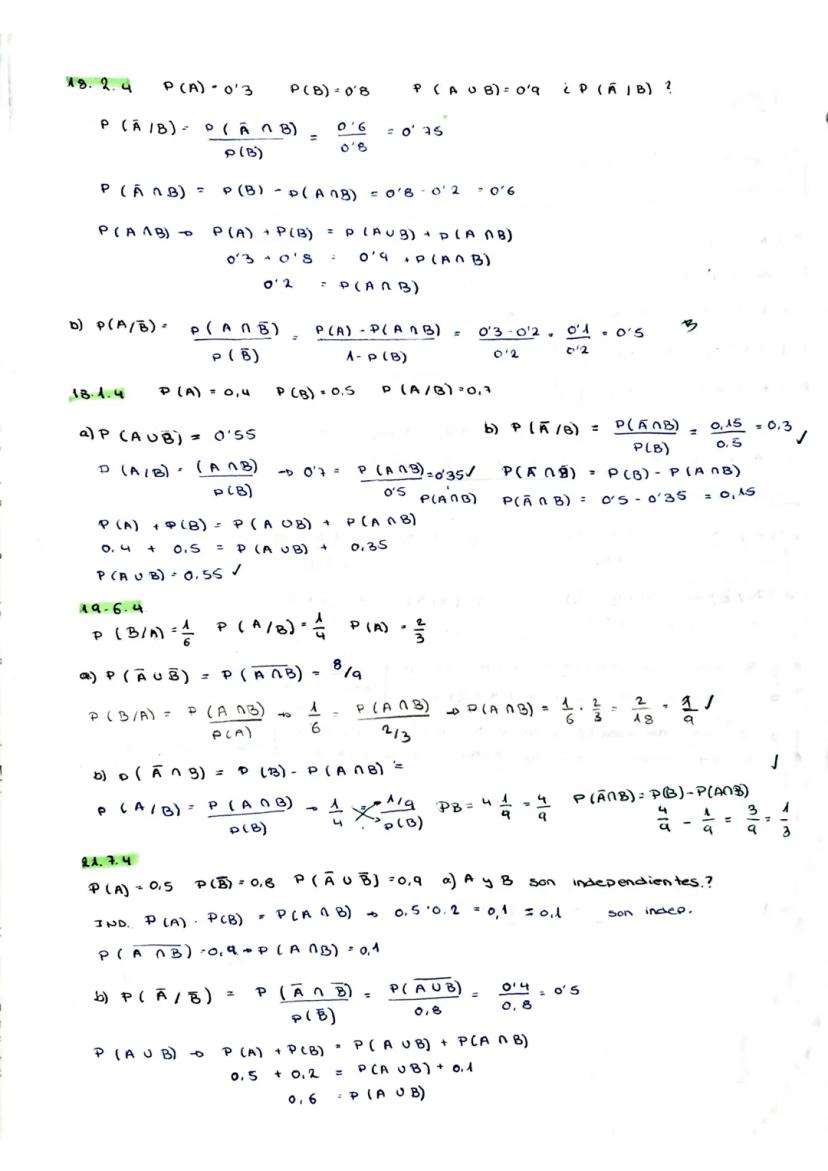 18.2.4 P(A) = 0'3 P(B) = 0'8 P(A ∪ B) = 0'9 ¿P(Ā | B)?
P(Ā/B) = P(Ā ∩ B) / P(B) = 0'6 / 0'8 = 0'75
P(Ā ∩ B) = P(B) - P(A ∩ B) = 0'8 - 0'2 = 0'6
P(A ∩ B) → P(A) + P(B) = P(A ∪ B) + P(A ∩ B)
0'3 + 0'8 = 0'9 + P(A ∩ B)
0'2 = P(A ∩ B)
b) P(A/B̄) = P(A ∩ B̄) / P(B̄) = P(A) - P(A ∩ B) / 1 - P(B) = 0'3 - 0'2 / 0'2 = 0'1 / 0'2 = 0'5 B
18.1.4 P(A) = 0,4 P(B) = 0.5 P(A/B) = 0,7
a) P(A ∪ B) = 0'55
P(A/B) = (A ∩ B) / P(B) → 0'7 = P(A ∩ B) / 0'5 = 0'35 ✓ P(A ∩ B)
P(A) + P(B) = P(A ∪ B) + P(A ∩ B)
0.4 + 0.5 = P(A ∪ B) + 0.35
P(A ∪ B) = 0.55 ✓
b) P(Ā/B) = P(Ā ∩ B) / P(B) = 0,15 / 0.5 = 0,3 ✓
P(Ā ∩ B) = P(B) - P(A ∩ B)
P(Ā ∩ B) = 0'5 - 0'35 = 0,15
19.6.4
P(B/A) = 1/6 P(A/B) = 1/4 P(A) = 2/3
a) P(Ā ∪ B̄) = P(A̅ ̅∩̅ ̅B̅) = 8/9
P(B/A) = P(A ∩ B) / P(A) → 1/6 = P(A ∩ B) / 2/3 → P(A ∩ B) = 1/6 · 2/3 = 2/18 = 1/9 ✓
b) P(Ā ∩ B) = P(B) - P(A ∩ B) =
P(A/B) = P(A ∩ B) / P(B) → 1/4 = 1/9 / P(B) PB = 4 1/9 = 4/9 P(Ā∩B) = P(B) - P(A∩B)
4/9 - 1/9 = 3/9 = 1/3
21.7.4
P(A) = 0,5 P(B̄) = 0,8 P(Ā ∪ B̄) = 0,9 a) A y B son independientes.?
IND. P(A) · P(B) = P(A ∩ B) → 0.5 · 0.2 = 0,1 = 0.1 son indep.
P(A̅ ̅∩̅ ̅B̅) = 0,9 → P(A ∩ B) = 0,1
b) P(Ā/B̄) = P(Ā ∩ B̄) / P(B̄) = P(A̅ ̅∪̅ ̅B̅) / 0,8 = 0'4 / 0.8 = 0'5
P(A ∪ B) → P(A) + P(B) = P(A ∪ B) + P(A ∩ B)
0.5 + 0.2 = P(A ∪ B) + 0.1
0.6 = P(A ∪ B)